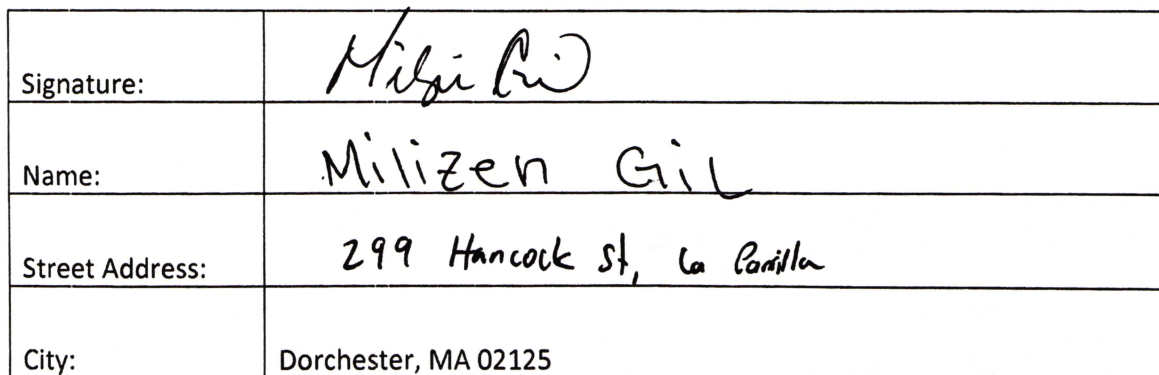 Signature:
Name: Milizen Gil
Street Address: 299 Hancock St, La Parrilla
City: Dorchester, MA 02125